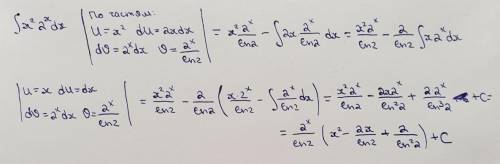 ∫x² 2ˣ dx | по частям: U = x² dU = 2xdx dϑ = 2ˣdx ϑ = 2ˣ/ln2 | = x² 2ˣ/ln2 − ∫2x 2ˣ/ln2 dx = x² 2ˣ/ln2 − 2/ln2 ∫x 2ˣ dx
| U = x dU = dx dϑ = 2ˣdx ϑ = 2ˣ/ln2 | = x² 2ˣ/ln2 − 2/ln2 (x·2ˣ/ln2 − ∫2ˣ/ln2 dx) = x² 2ˣ/ln2 − 2x 2ˣ/ln²2 + 2·2ˣ/ln³2 + C =
= 2ˣ/ln2 (x² − 2x/ln2 + 2/ln²2) + C